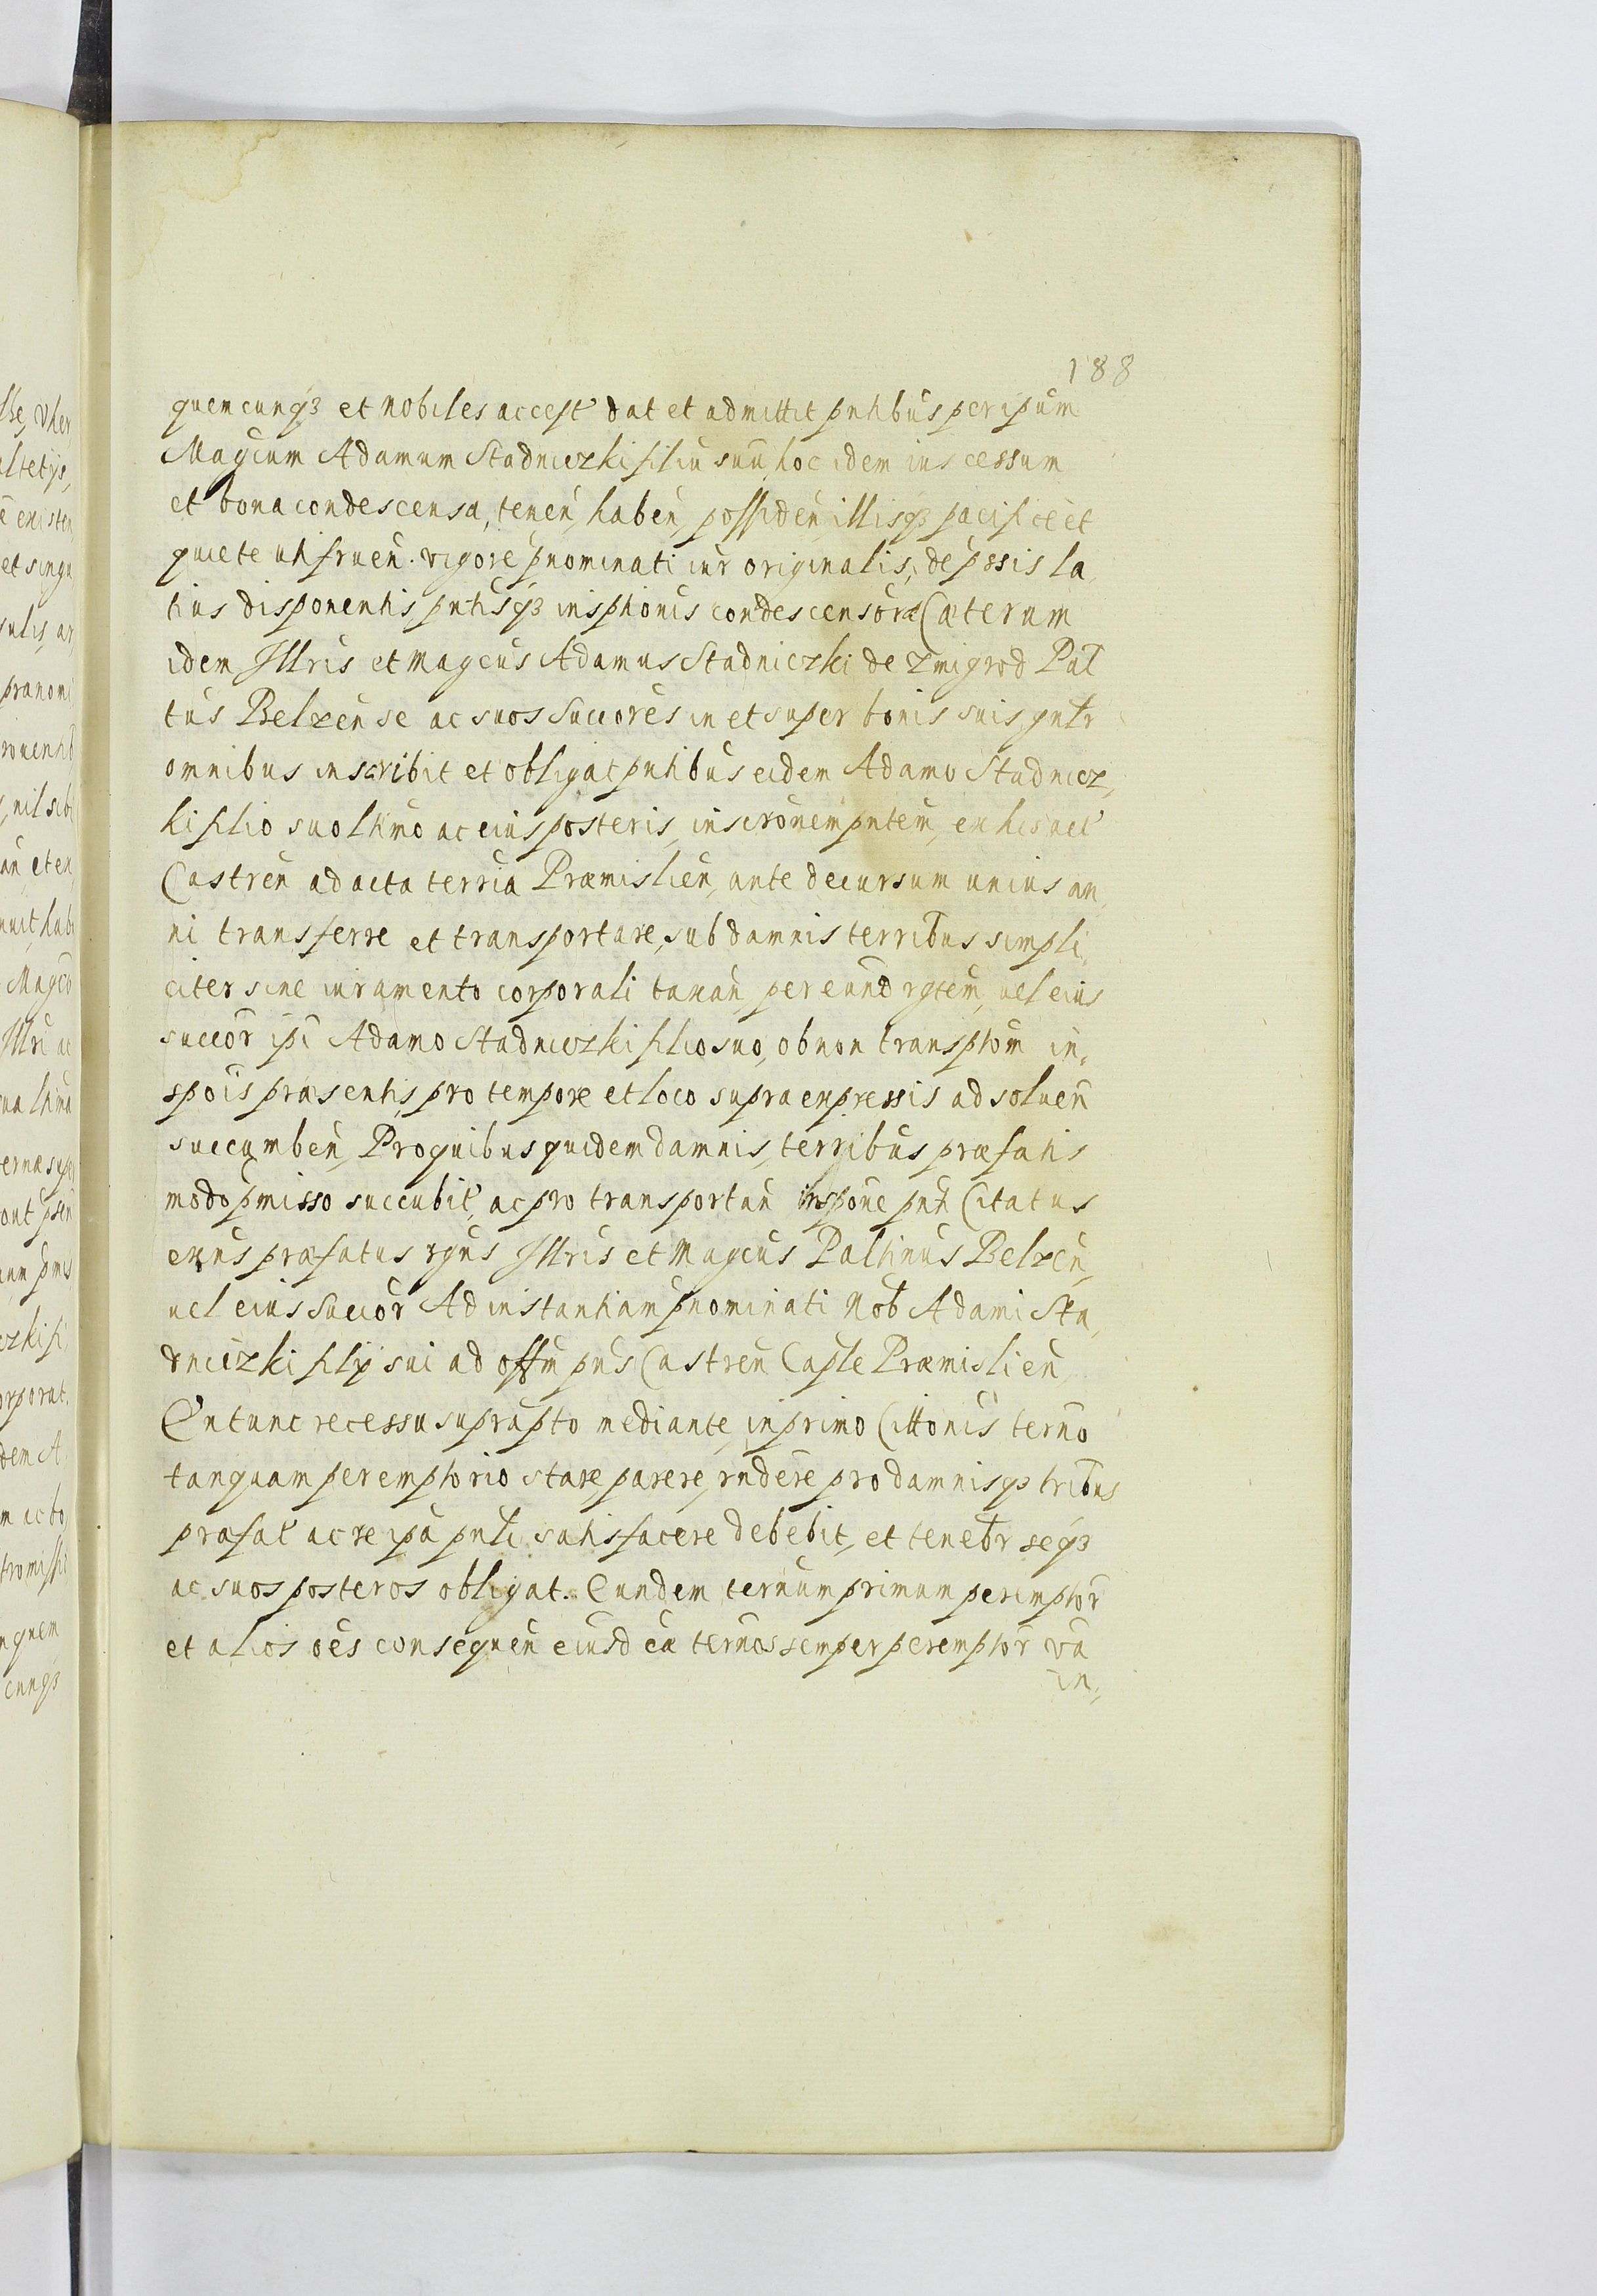 188
quemcunqȝ et nobiles accept̃ dat et admittit pñtibus per ipsum
Magcum Adamum Stadniczki filiū suū, hoc idem ius cessum
et bona condescensa, teneñ, habeñ, possideñ illisqȝ pacifice et
quiete uti frueñ. vigore p̃nominati iur̃ originalis, de p̃ssis la,
tius disponentis pñtisqȝ insp̃tionis condescensoræ Cæterum
idem Illris et Magcus Adamus Stadniczki de Zmigrod Pal̃
tus Belzeñ se ac suos Succores in et super bonis suis gñlr
omnibus inscribit et obligat pñtibus eidem Adamo Stadnicz,
ki filio suo lt̃imo ac eius posteris, inscr̃onem pñtem, ex his uel
Castreñ ad acta terr̃ia Præmislieñ, ante decursum unius an,
ni transferre et transportare, sub damnis terr̃ibus simpli,
citer sine iuramento corporali taxañ, per eund rgtem, uel eius
succor̃ ip̃i Adamo Stadniczki filio suo, ob non transp̃tom̃ in,
sp̃ois præsentis, pro tempore et loco supra expressis ad solueñ
succumbeñ, Pro quibus quidem damnis, terr̃ibus præfatis
modo p̃misso succubit̃, ac pro transportañ inspone pñti Citatus
exñs præfatus rgns Illris et Magcus Pal̃tinus Belzeñ,
uel eius Succor̃ Ad instantiam p̃nominati Nob̃ Adami Sta,
dniczki filÿ sui ad off̃m pñs Castreñ Cap̃le Præmislieñ
Ex tunc recessu suprap̃to mediante, in primo Citt̃onis terño
tanquam peremptorio stare, parere, rñdere pro damnisqȝ tribus
præfat̃ ac re ip̃a pñti satisfacere debebit, et tenebr̃ seqȝ
ac suos posteros obligat. Eundem terñum primum peremptor̃
et alios oẽs consequeñ eiusd cã terños semper peremptor̃ va
in,